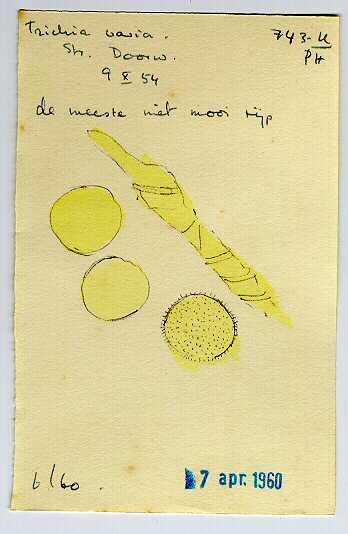 Trichia varia.
Str. Doorw.
9 X 54
743-U
PH
de meeste niet mooi rijp
6/60.
7 apr. 1960